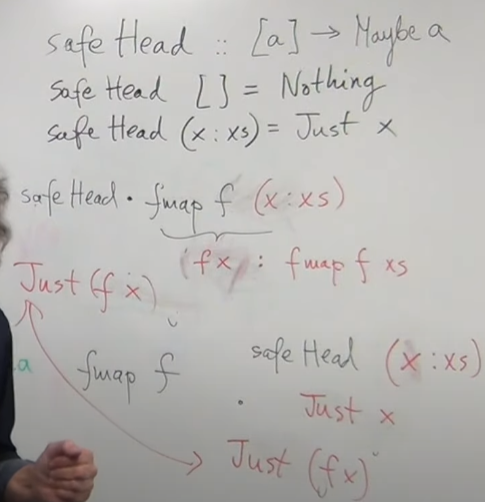 safe Head :: [a] → Maybe a
safe Head [] = Nothing
safe Head (x:xs) = Just x
safe Head . fmap f (x:xs)
(fx) : fmap f xs
Just (f x)
a fmap f . safe Head (x:xs)
Just x
Just (fx)